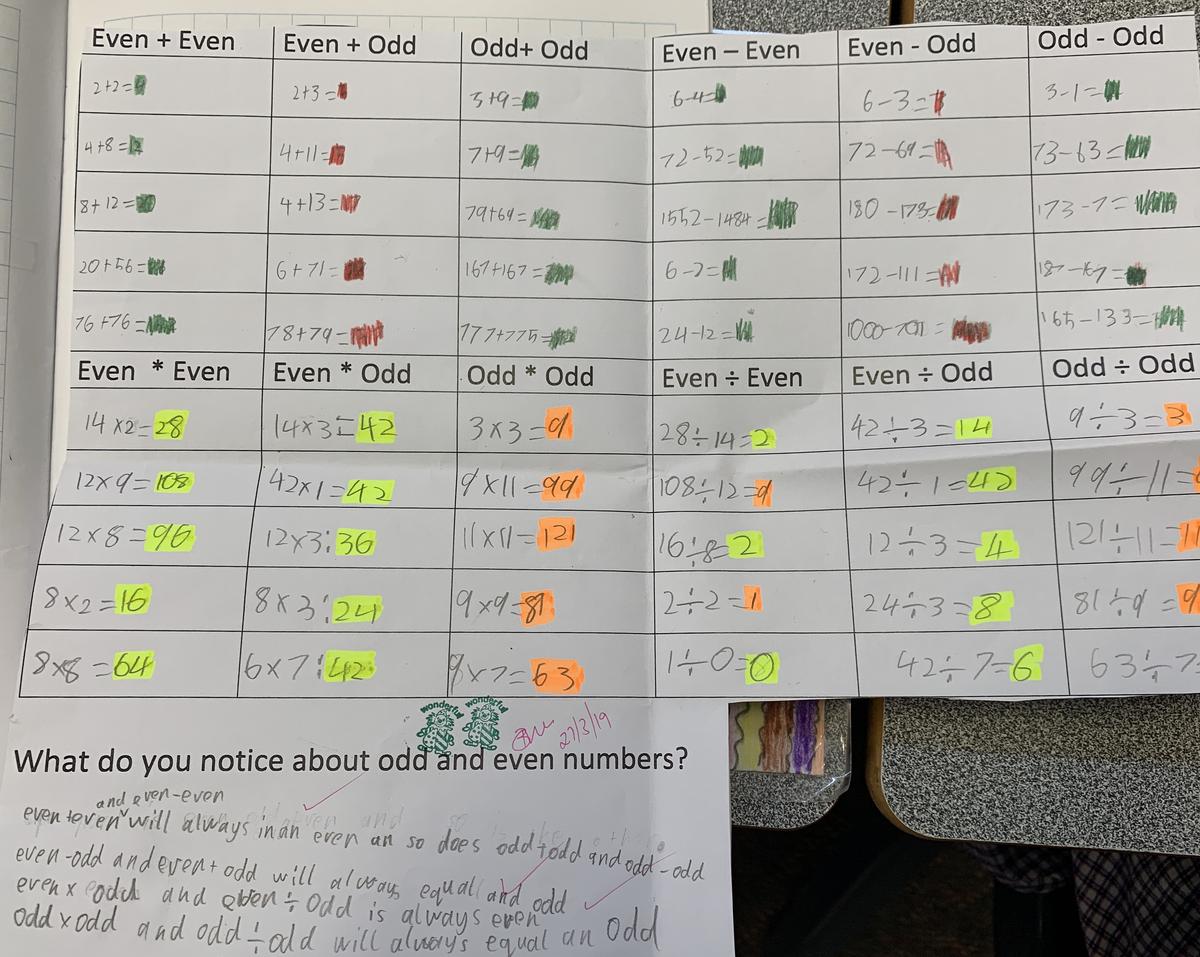 Even + Even Even + Odd Odd+ Odd Even – Even Even - Odd Odd - Odd
2+2= 2+3= 3+9= 6-4= 6-3= 3-1=
4+8= 4+11= 7+9= 72-52= 72-69= 73-63=
8+12= 4+13= 79+69= 1552-1484= 180-173= 173-7=
20+56= 6+71= 167+167= 6-2= 172-111= 187-67=
76+76= 78+79= 777+775= 24-12= 1000-701= 165-133=
Even * Even Even * Odd Odd * Odd Even ÷ Even Even ÷ Odd Odd ÷ Odd
14×2=28 14×3=42 3×3=9 28÷14=2 42÷3=14 9÷3=3
12×9=108 42×1=42 9×11=99 108÷12=9 42÷1=42 99÷11=
12×8=96 12×3:36 11×11=121 16÷8=2 12÷3=4 121÷11=11
8×2=16 8×3:24 9×9=81 2÷2=1 24÷3=8 81÷9=9
8×8=64 6×7:42 9×7=63 1÷0=0 42÷7=6 63÷7
wonderful wonderful
27/3/19
What do you notice about odd and even numbers?
and even-even
even+even will always in an even an so does odd+odd and odd-odd
even-odd and even+odd will always equal and odd
even x odd and even÷odd is always even
odd x odd and odd÷odd will always equal an odd